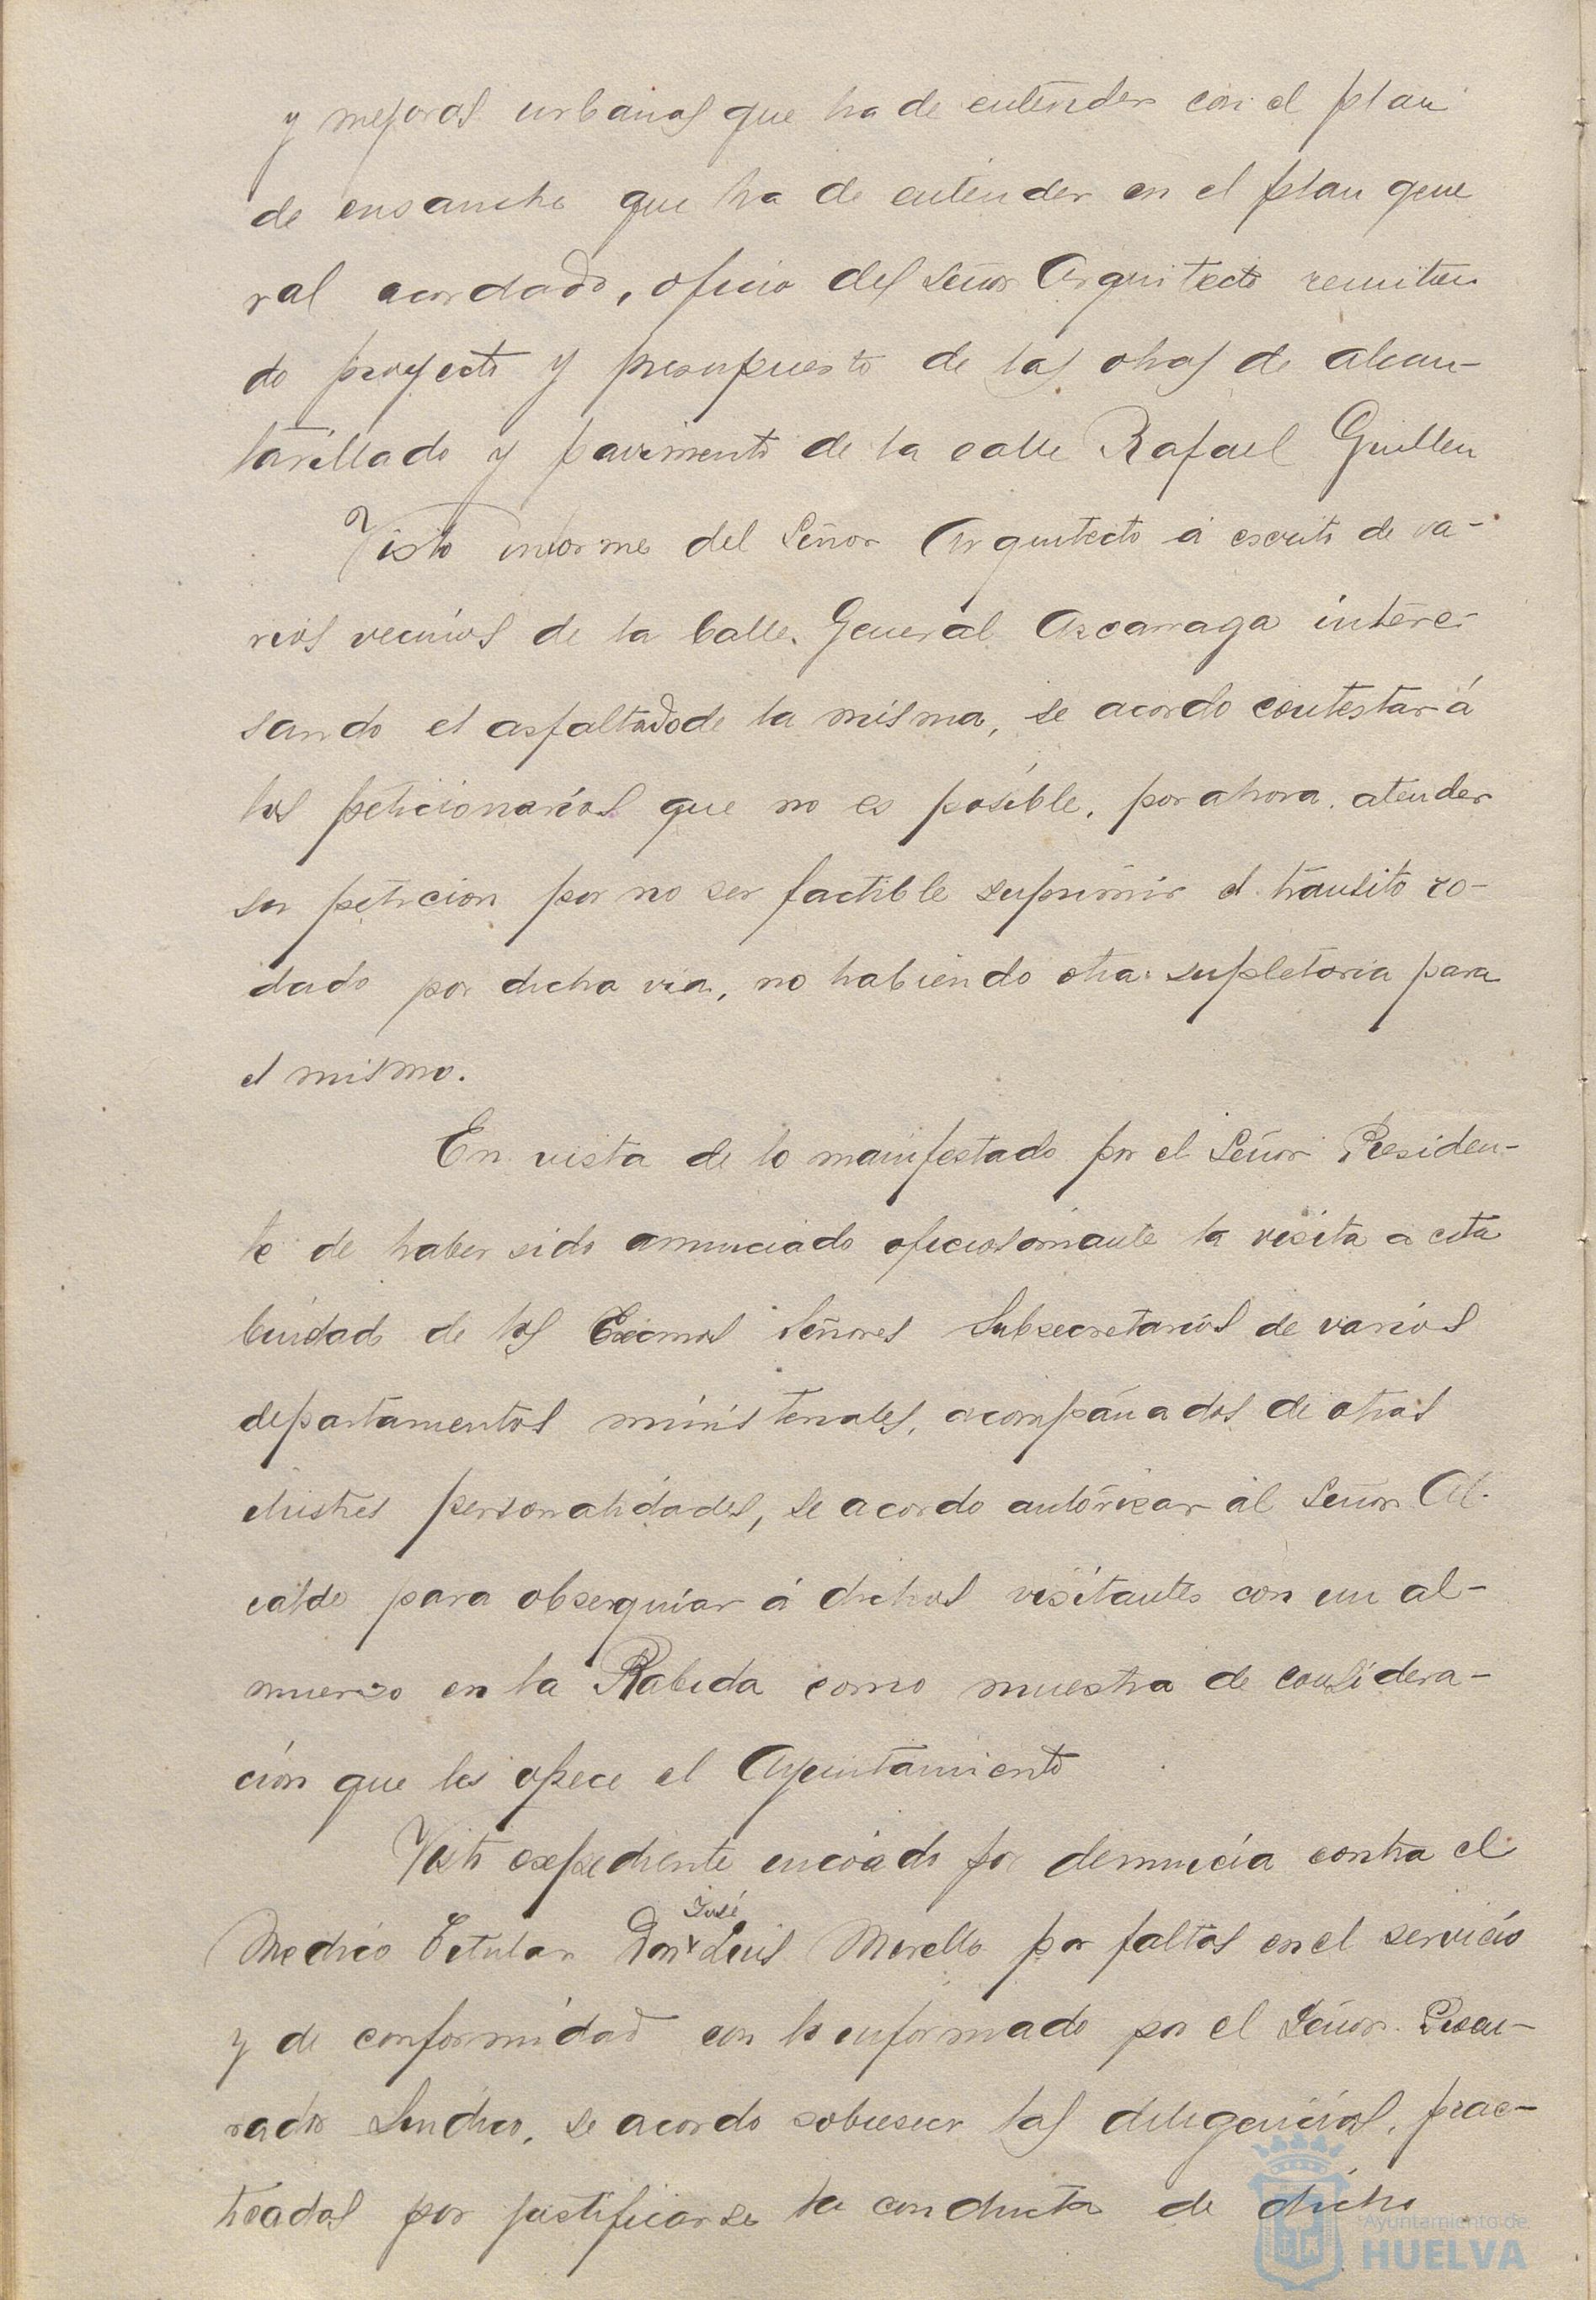 y mejoras urbanas que ha de entender con el plan
de ensanche que ha de entender en el plan gene
ral acordado, oficio del Señor Arquitecto remitien
do proyecto y presupuesto de las obras de alcan-
tarillado y pavimento de la calle Rafael Guillen
Visto informe del Señor Arquitecto á escrito de va-
rios vecinos de la Calle General Azcarraga intere-
sando el asfaltado de la misma, se acordo contestar á
los peticionarios que no es posible, por ahora, atender
su peticion por no ser factible suprimir el transito ro-
dado por dicha via, no habiendo otra supletoria para
el mismo.
En vista de lo manifestado por el Señor Presiden-
te de haber sido anunciado la visita a esta
Ciudad de los Excmos Señores Subsecretarios de varios
departamentos ministeriales, acompañados de otras
ilustres personalidades, se acordo autorizar al Señor Al-
calde para obsequiar á dichos visitantes con un al-
muerzo en la Rabida como muestra de considera-
ción que les ofrece el Ayuntamiento
Visto expediente incoado por denuncia contra el
José
Medico Titular Don Luis Morello por faltas en el servicio
y de conformidad con lo informado por el Señor Procu-
rador Sindico, se acordo sobreseer las diligencias, prac-
ticadas por justificarse la conducta de dicho
Ayuntamiento de
HUELVA